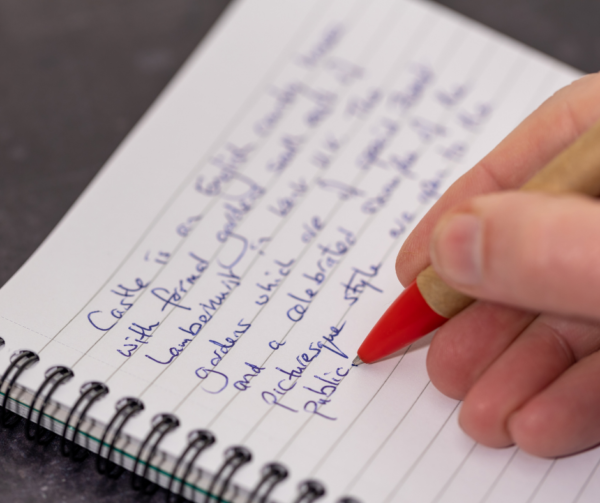 Castle is an English country house
with formal gardens south east of
Lamberhurst in Kent UK. The
gardens which are of special
and a celebrated example of the
picturesque style are open to the
public.